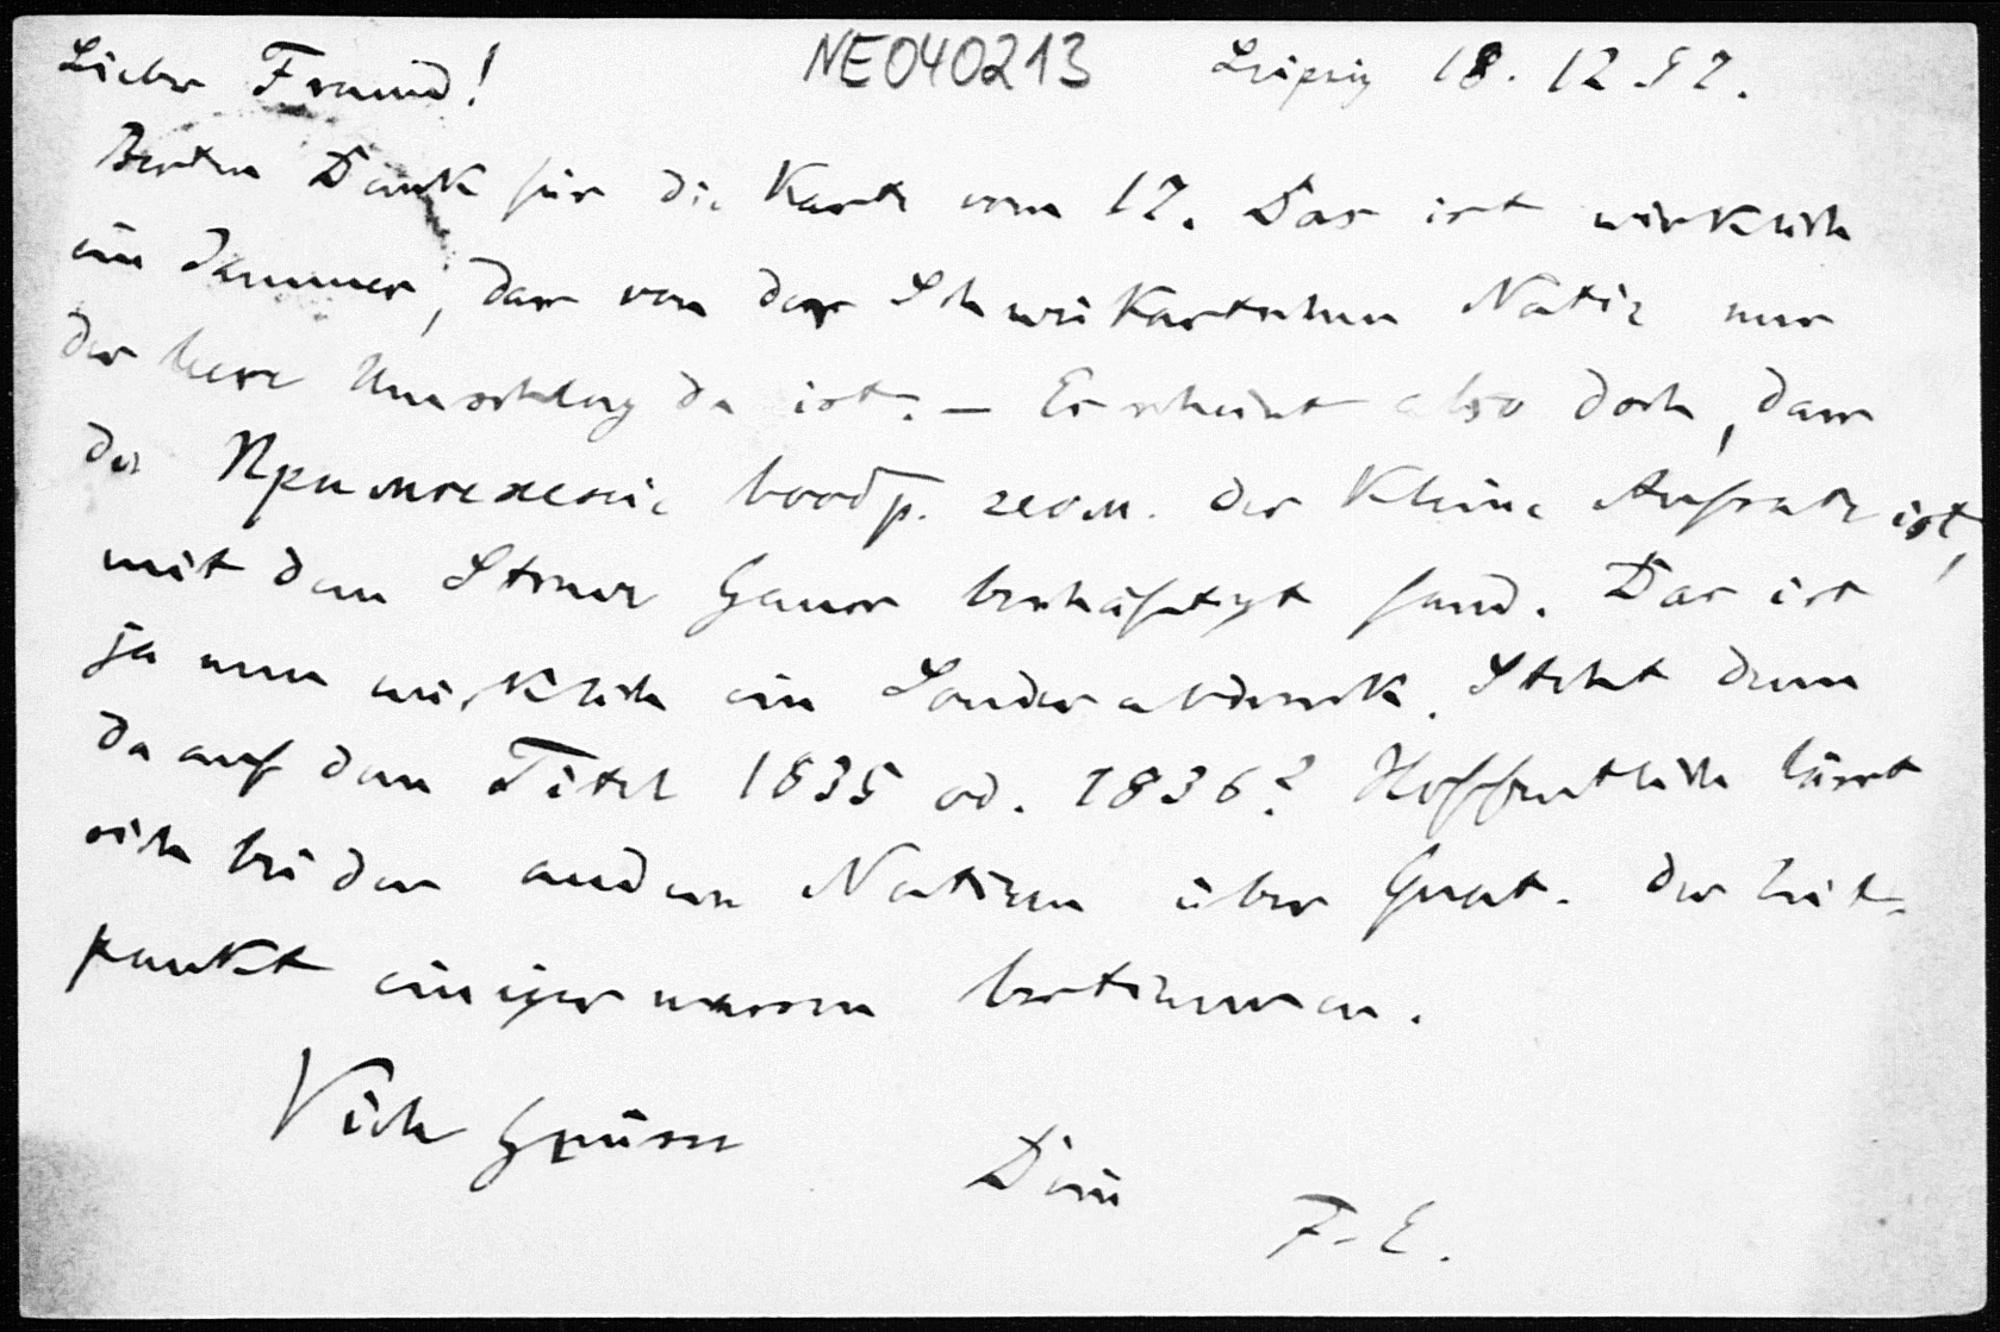 Lieber Freund! NE040213 Leipzig 18. 12. 97.
Besten Dank für die Karte vom 17. Das ist wirklich
ein Jammer, dass von der Schweikartschen Notiz nur
der leere Umschlag da ist. — Es scheint also doch, dass
die Примѣненiе вообр. геом. der kleine Aufsatz ist,
mit dem Struve Gauss beschäftigt fand. Das ist
ja nun wirklich ein Sonderabdruck. Steht denn
da auf dem Titel 1835 od. 1836? Hoffentlich lässt
sich bei den andern Notizen über Grat. der Zeit-
punkt einigermassen bestimmen.
Viele Grüsse
Dein
F. E.